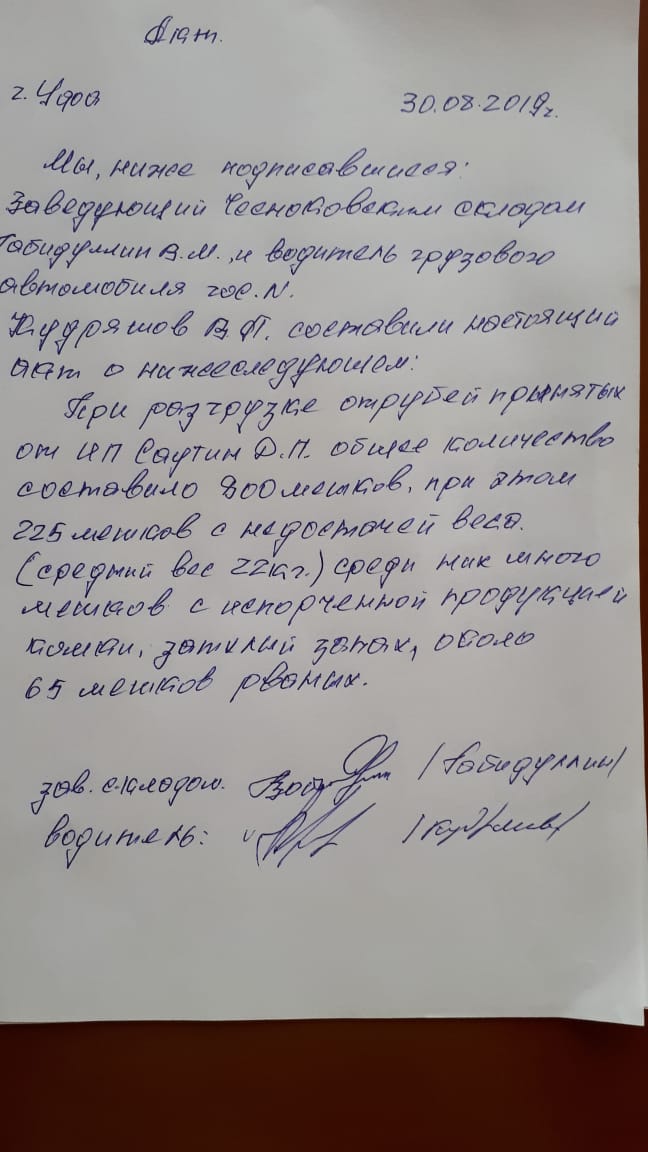 Акт.
г. Уфа 30.08.2019г.
Мы, ниже подписавшиеся:
Заведующий Чесноковским складом
Габидуллин В.М., и водитель грузового
автомобиля гос. N.
Кудряшов В.П. составили настоящий
акт о нижеследующем:
При разгрузке отрубей принятых
от ИП Саутин Д.П. общее количество
составило 800 мешков, при этом
225 мешков с недостачей веса.
(средний вес 22кг.) среди них много
мешков с испорченной продукцией
комки, затхлый запах, около
65 мешков рваных.
зав. складом. /Габидуллин/
водитель: